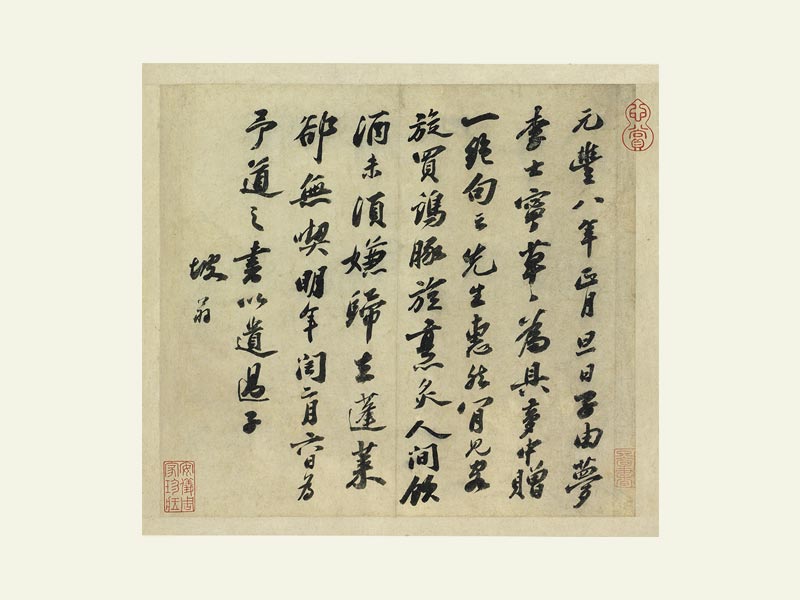 元豐八年正月旦日子由夢
李士寧草草為具夢中贈
一絕句云先生惠然肯見客
旋買鷄豚旋烹炙人間飲
酒未須嫌歸去蓬萊
卻無喫明年閏二月六日為
予道之書以遺過子
坡翁
心賞
安儀周
家珍藏